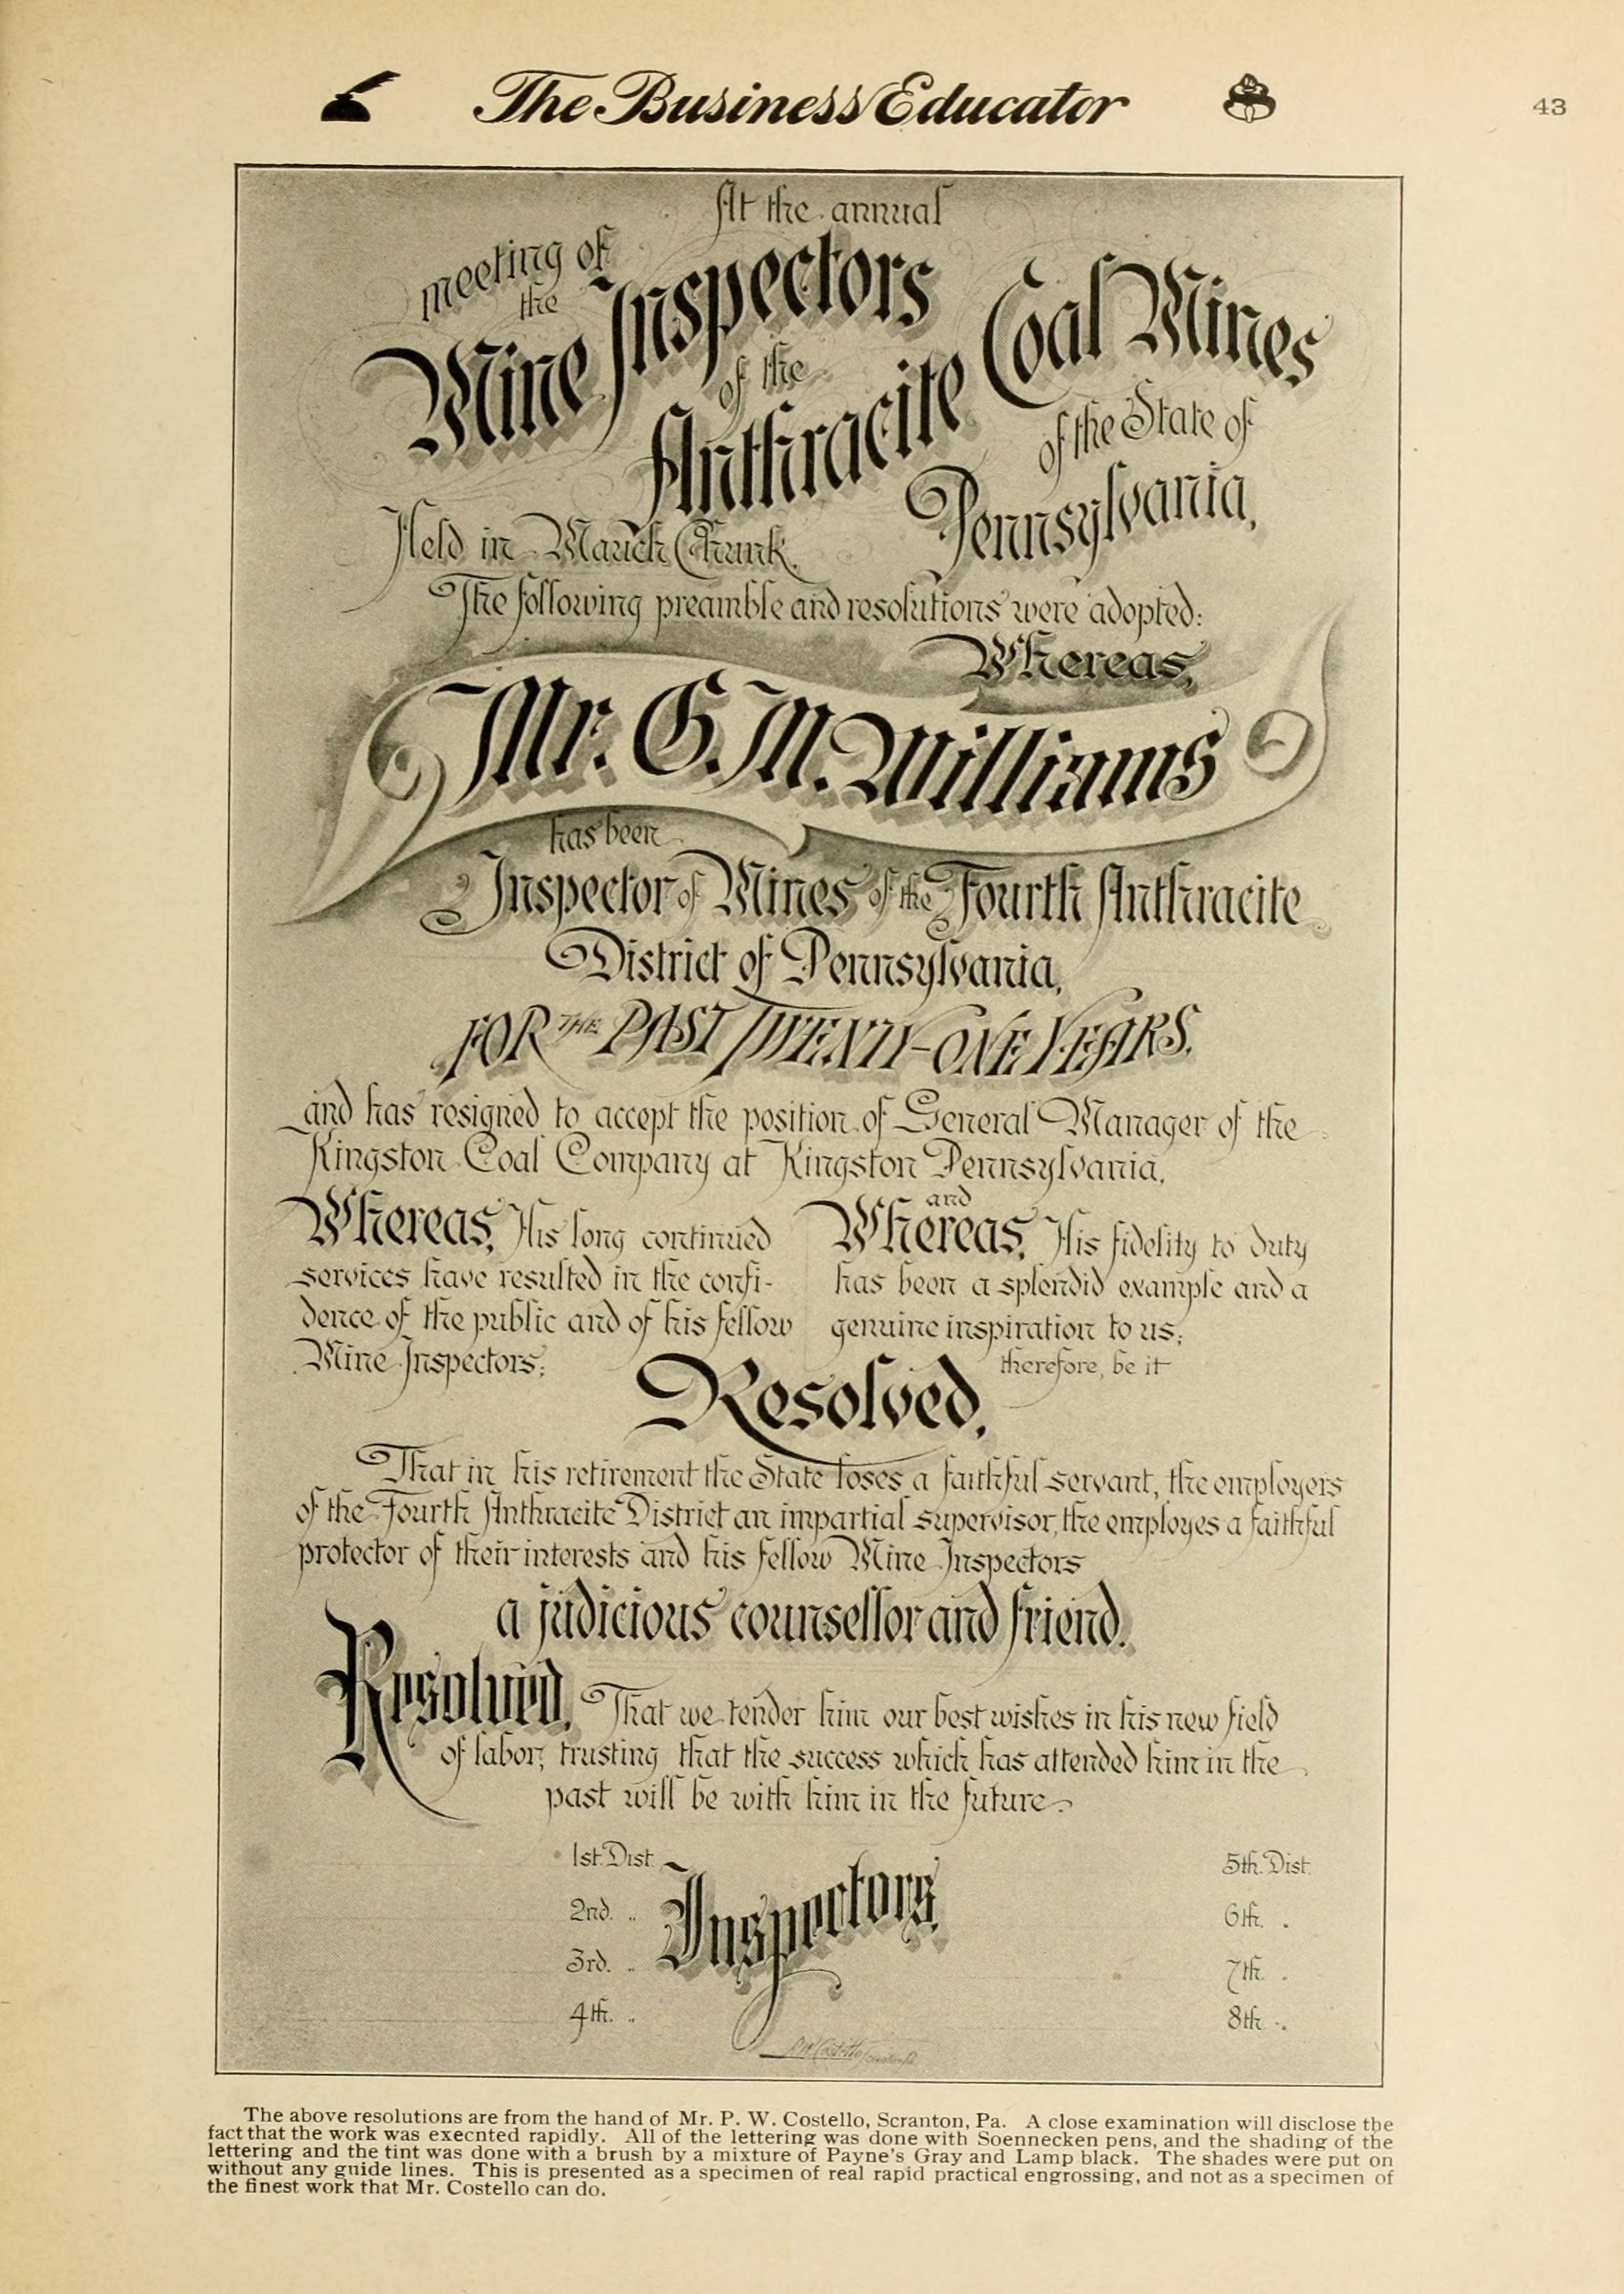 The Business Educator
43
At the annual
meeting of
the
Mine Inspectors
of the
Anthracite
Coal Mines
of the State of
Pennsylvania,
Held in Mauch Chunk.
The following preamble and resolutions were adopted:
Whereas,
Mr. G. M. Williams
has been
Inspector of Mines of the Fourth Anthracite
District of Pennsylvania,
FOR THE PAST TWENTY-ONE YEARS.
and has resigned to accept the position of General Manager of the
Kingston Coal Company at Kingston Pennsylvania,
Whereas, His long continued
services have resulted in the confi-
dence of the public and of his fellow
Mine Inspectors;
and
Whereas, His fidelity to duty
has been a splendid example and a
genuine inspiration to us;
therefore, be it
Resolved,
That in his retirement the State loses a faithful servant, the employers
of the Fourth Anthracite District an impartial supervisor, the employes a faithful
protector of their interests and his fellow Mine Inspectors
a judicious counsellor and friend.
Resolved, That we tender him our best wishes in his new field
of labor, trusting that the success which has attended him in the
past will be with him in the future.
1st. Dist.
2nd. "
3rd. "
4th. "
Inspectors.
5th. Dist.
6th. "
7th. "
8th. "
The above resolutions are from the hand of Mr. P. W. Costello, Scranton, Pa. A close examination will disclose the
fact that the work was execnted rapidly. All of the lettering was done with Soennecken pens, and the shading of the
lettering and the tint was done with a brush by a mixture of Payne's Gray and Lamp black. The shades were put on
without any guide lines. This is presented as a specimen of real rapid practical engrossing, and not as a specimen of
the finest work that Mr. Costello can do.